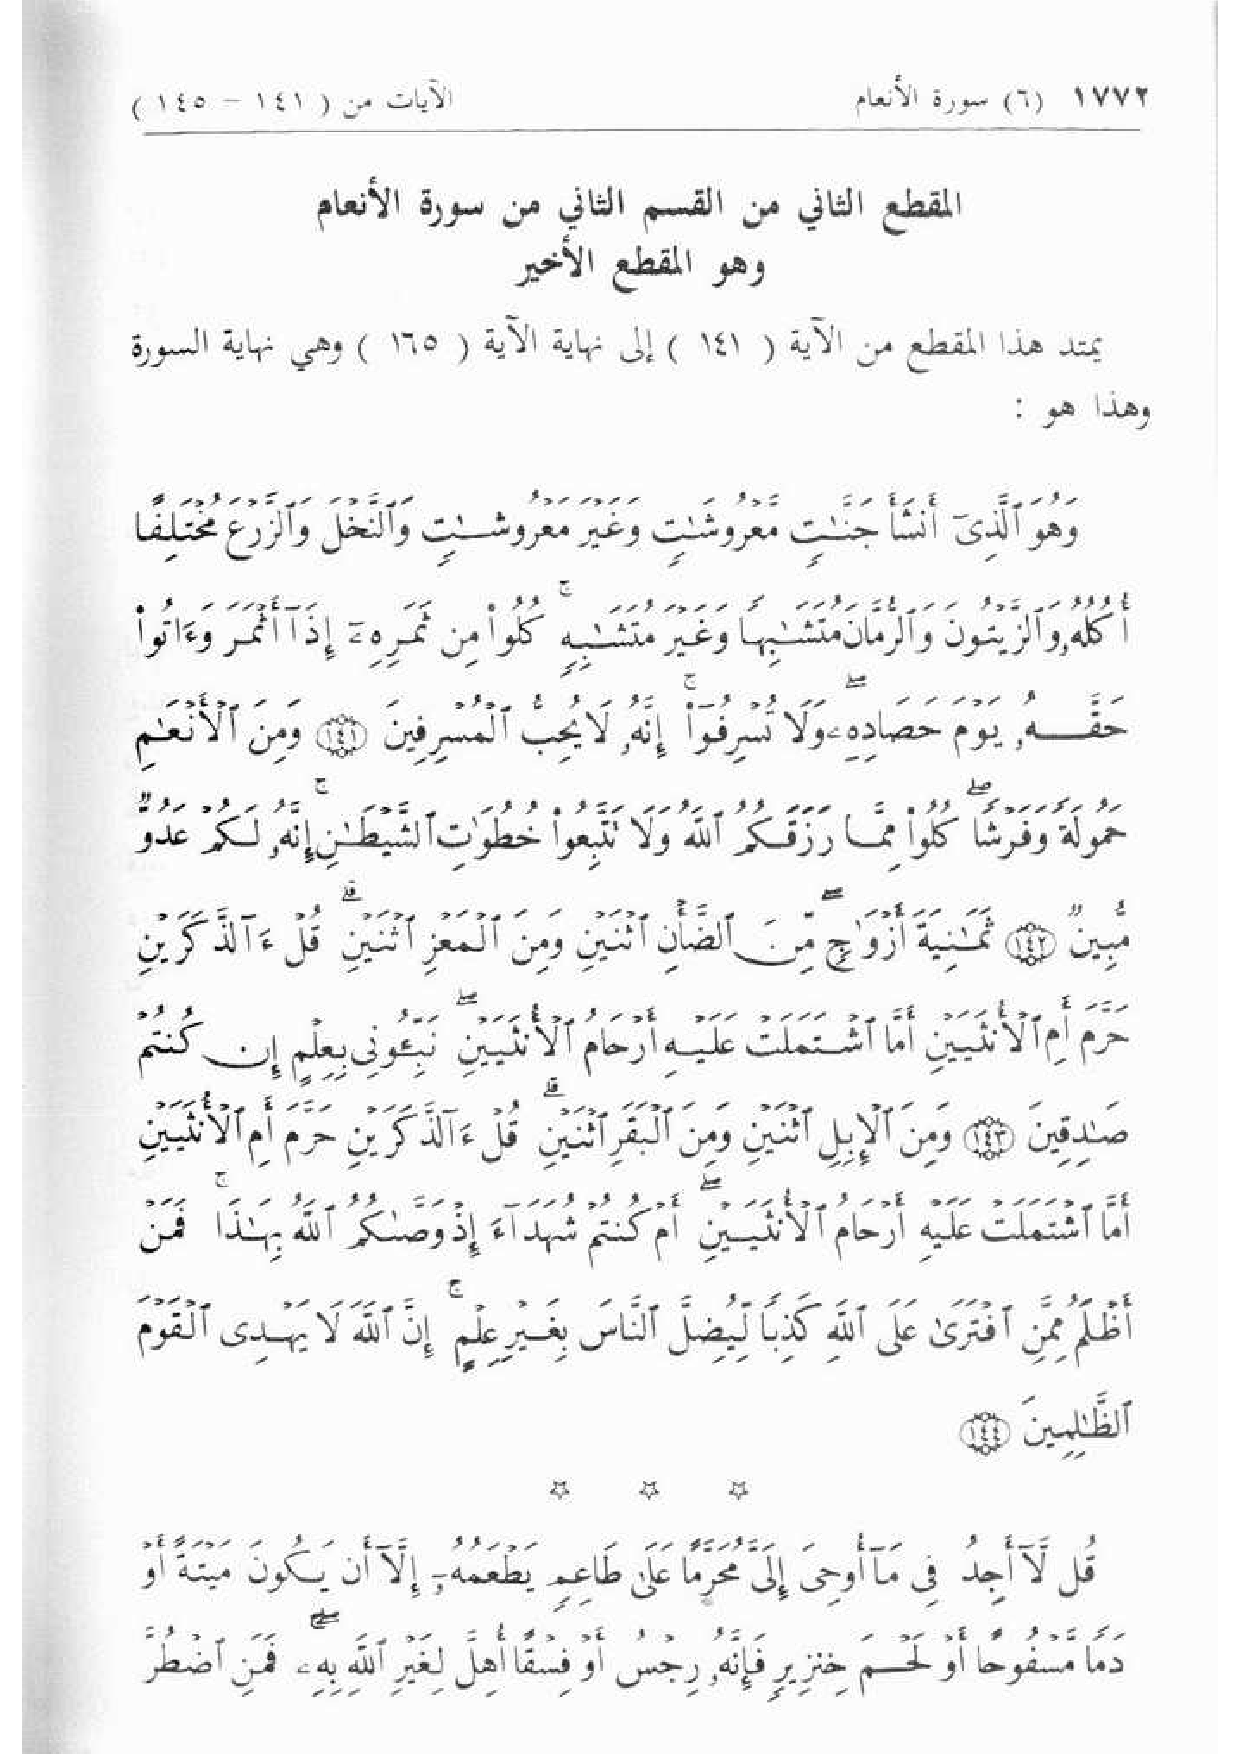 ١٧٧٢ (٦) سورة الأنعام الآيات من ( ١٤١ - ١٤٥ )
المقطع الثاني من القسم الثاني من سورة الأنعام
وهو المقطع الأخير
يمتد هذا المقطع من الآية ( ١٤١ ) إلى نهاية الآية ( ١٦٥ ) وهي نهاية السورة
وهذا هو :
وَهُوَ ٱلَّذِىٓ أَنشَأَ جَنَّـٰتٍ مَّعْرُوشَـٰتٍ وَغَيْرَ مَعْرُوشَـٰتٍ وَٱلنَّخْلَ وَٱلزَّرْعَ مُخْتَلِفًا
أُكُلُهُۥ وَٱلزَّيْتُونَ وَٱلرُّمَّانَ مُتَشَـٰبِهًا وَغَيْرَ مُتَشَـٰبِهٍ ۚ كُلُوا۟ مِن ثَمَرِهِۦٓ إِذَآ أَثْمَرَ وَءَاتُوا۟
حَقَّهُۥ يَوْمَ حَصَادِهِۦ ۖ وَلَا تُسْرِفُوٓا۟ ۚ إِنَّهُۥ لَا يُحِبُّ ٱلْمُسْرِفِينَ ١٤١ وَمِنَ ٱلْأَنْعَـٰمِ
حَمُولَةً وَفَرْشًا ۖ كُلُوا۟ مِمَّا رَزَقَكُمُ ٱللَّهُ وَلَا تَتَّبِعُوا۟ خُطُوَٰتِ ٱلشَّيْطَـٰنِ ۚ إِنَّهُۥ لَكُمْ عَدُوٌّ
مُّبِينٌ ١٤٢ ثَمَـٰنِيَةَ أَزْوَٰجٍ ۖ مِّنَ ٱلضَّأْنِ ٱثْنَيْنِ وَمِنَ ٱلْمَعْزِ ٱثْنَيْنِ ۗ قُلْ ءَآلذَّكَرَيْنِ
حَرَّمَ أَمِ ٱلْأُنثَيَيْنِ أَمَّا ٱشْتَمَلَتْ عَلَيْهِ أَرْحَامُ ٱلْأُنثَيَيْنِ ۖ نَبِّـُٔونِى بِعِلْمٍ إِن كُنتُمْ
صَـٰدِقِينَ ١٤٣ وَمِنَ ٱلْإِبِلِ ٱثْنَيْنِ وَمِنَ ٱلْبَقَرِ ٱثْنَيْنِ ۗ قُلْ ءَآلذَّكَرَيْنِ حَرَّمَ أَمِ ٱلْأُنثَيَيْنِ
أَمَّا ٱشْتَمَلَتْ عَلَيْهِ أَرْحَامُ ٱلْأُنثَيَيْنِ ۖ أَمْ كُنتُمْ شُهَدَآءَ إِذْ وَصَّىٰكُمُ ٱللَّهُ بِهَـٰذَا ۚ فَمَنْ
أَظْلَمُ مِمَّنِ ٱفْتَرَىٰ عَلَى ٱللَّهِ كَذِبًا لِّيُضِلَّ ٱلنَّاسَ بِغَيْرِ عِلْمٍ ۚ إِنَّ ٱللَّهَ لَا يَهْدِى ٱلْقَوْمَ
ٱلظَّـٰلِمِينَ ١٤٤
قُل لَّآ أَجِدُ فِى مَآ أُوحِىَ إِلَىَّ مُحَرَّمًا عَلَىٰ طَاعِمٍ يَطْعَمُهُۥٓ إِلَّآ أَن يَكُونَ مَيْتَةً أَوْ
دَمًا مَّسْفُوحًا أَوْ لَحْمَ خِنزِيرٍ فَإِنَّهُۥ رِجْسٌ أَوْ فِسْقًا أُهِلَّ لِغَيْرِ ٱللَّهِ بِهِۦ ۚ فَمَنِ ٱضْطُرَّ